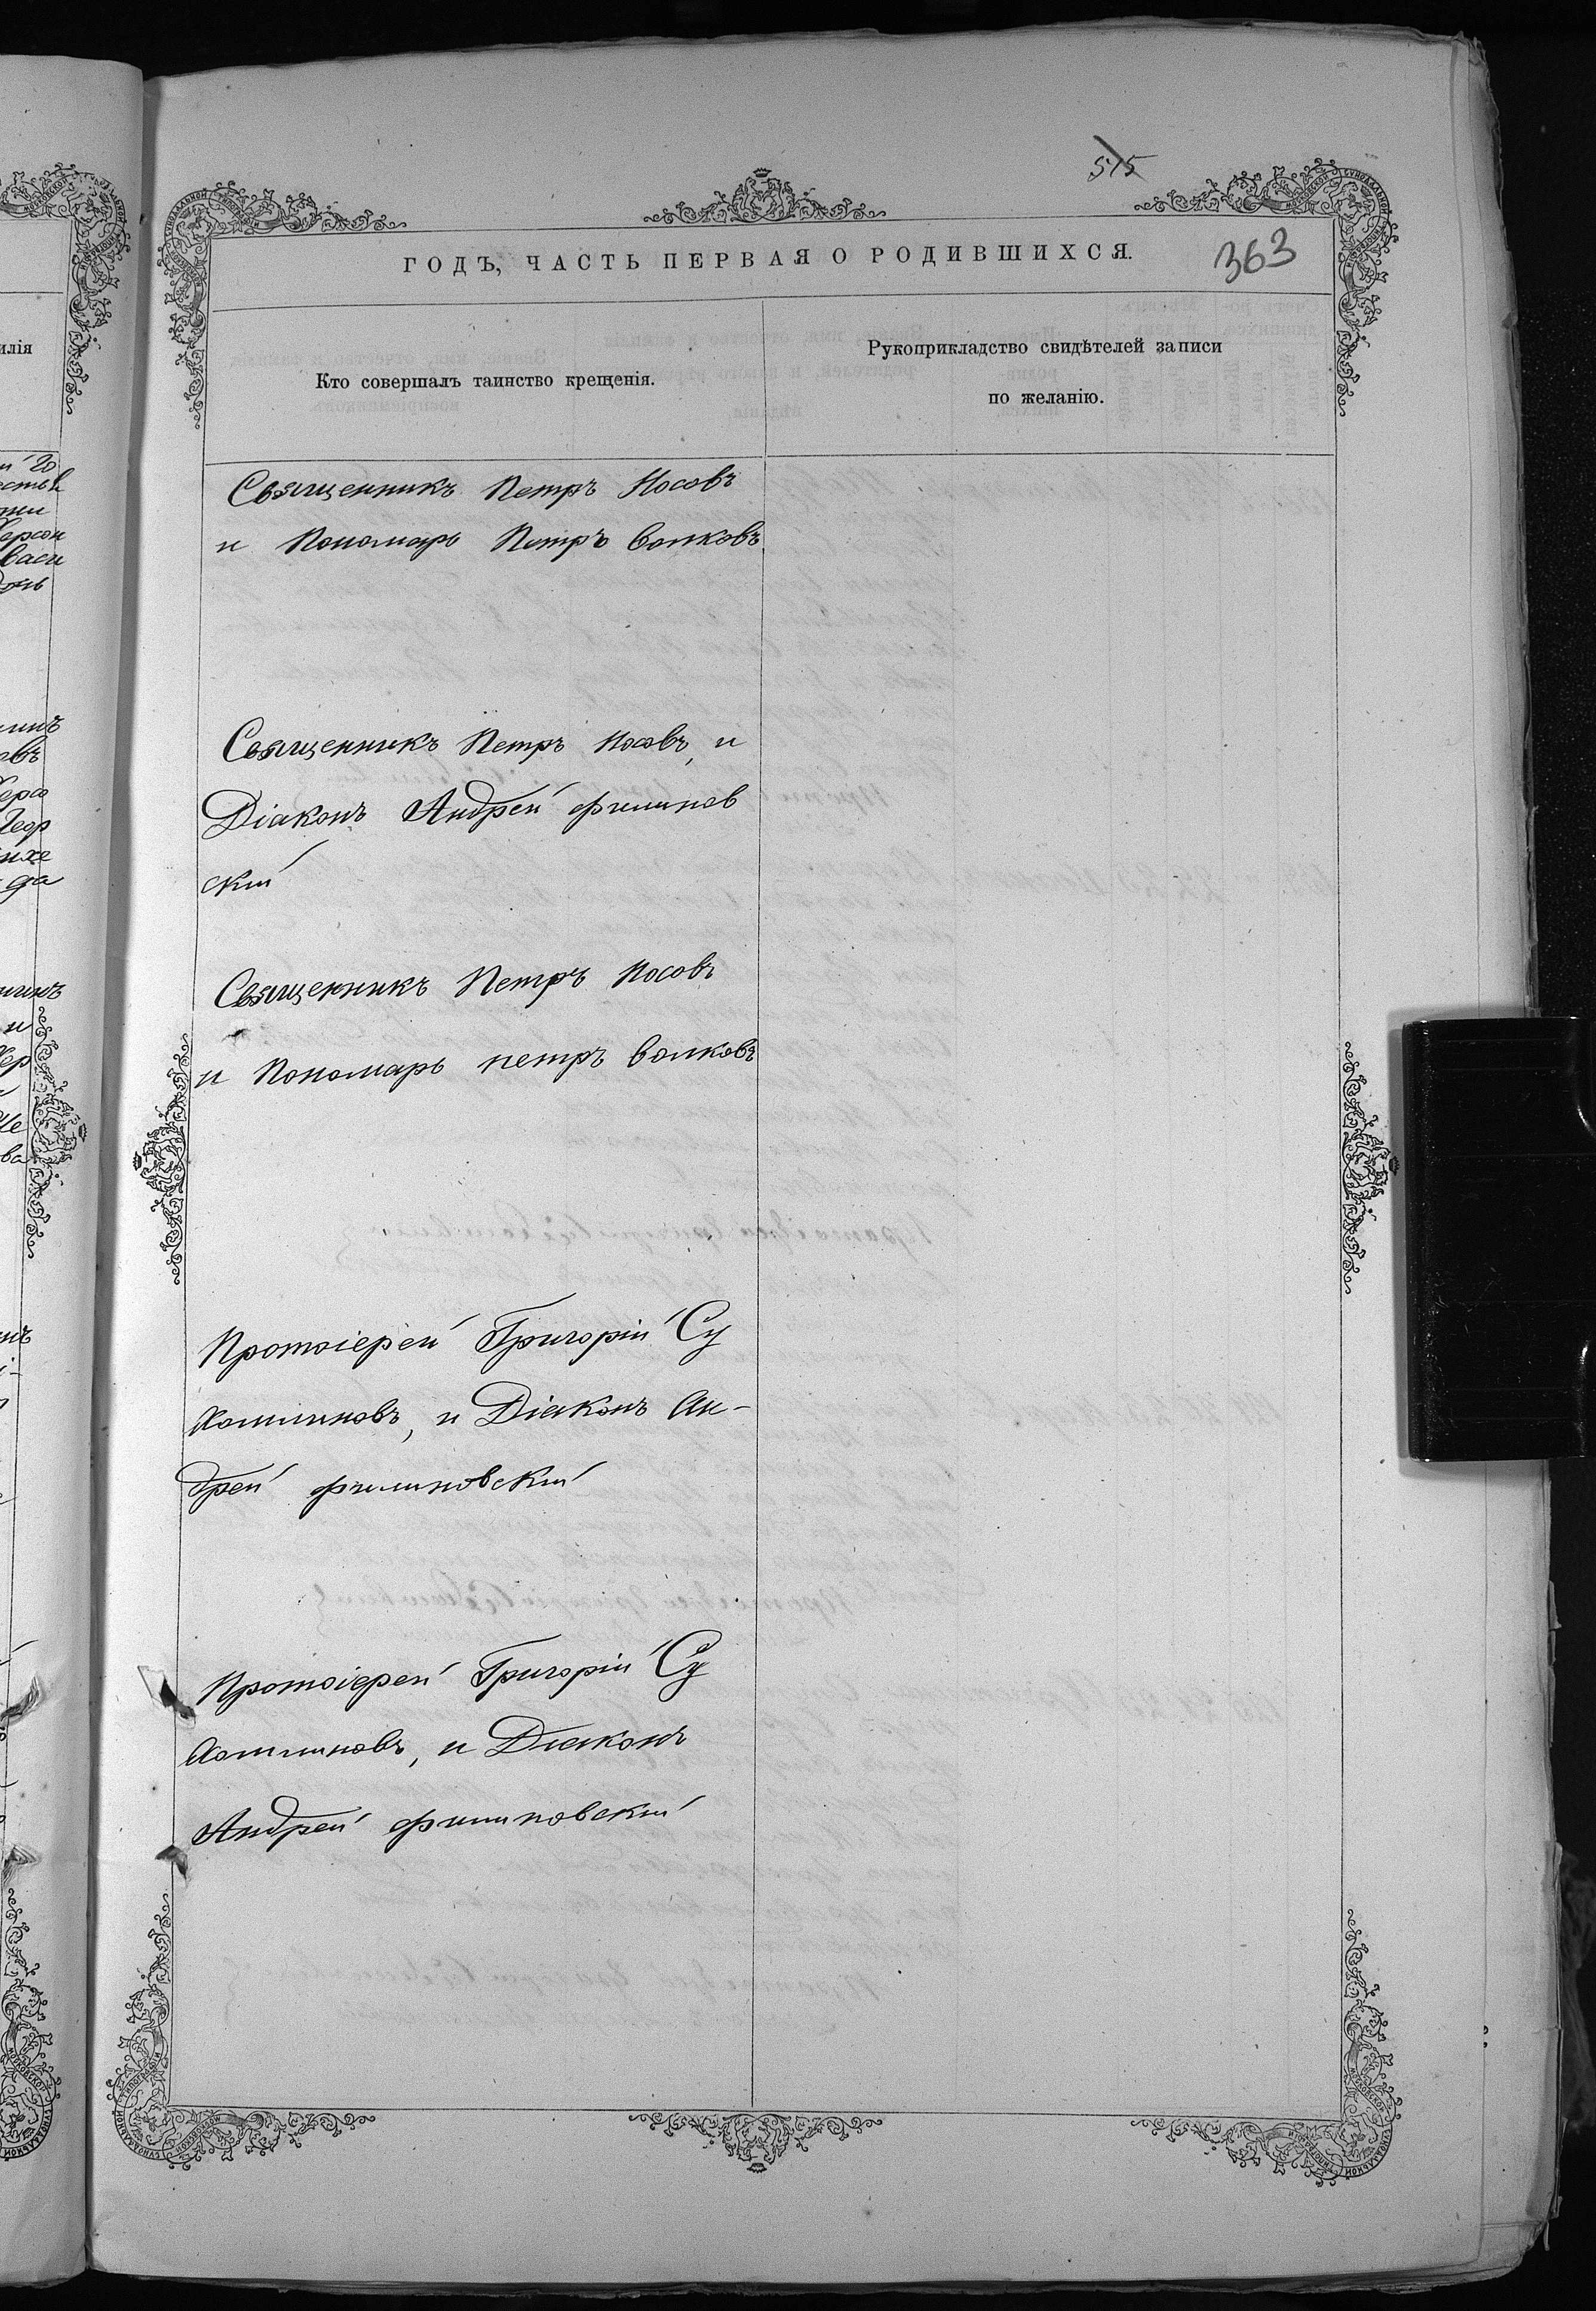 515
363
ГОДЪ, ЧАСТЬ ПЕРВАЯ О РОДИВШИХСЯ.
Кто совершалъ таинство крещенія.
Рукоприкладство свидѣтелей записи
по желанію.
Священникъ Петръ Носовъ
и Пономарь Петръ Волковъ
Священникъ Петръ Носовъ, и
Діаконъ Андрей Филинов
скій
Священникъ Петръ Носовъ
и Пономарь Петръ Волковъ
Протоіерей Григорій Су
хомлиновъ, и Діаконъ Ан-
дрей Филиновскій
Протоіерей Григорій Су
хомлиновъ, и Діаконъ
Андрей Филиновскій